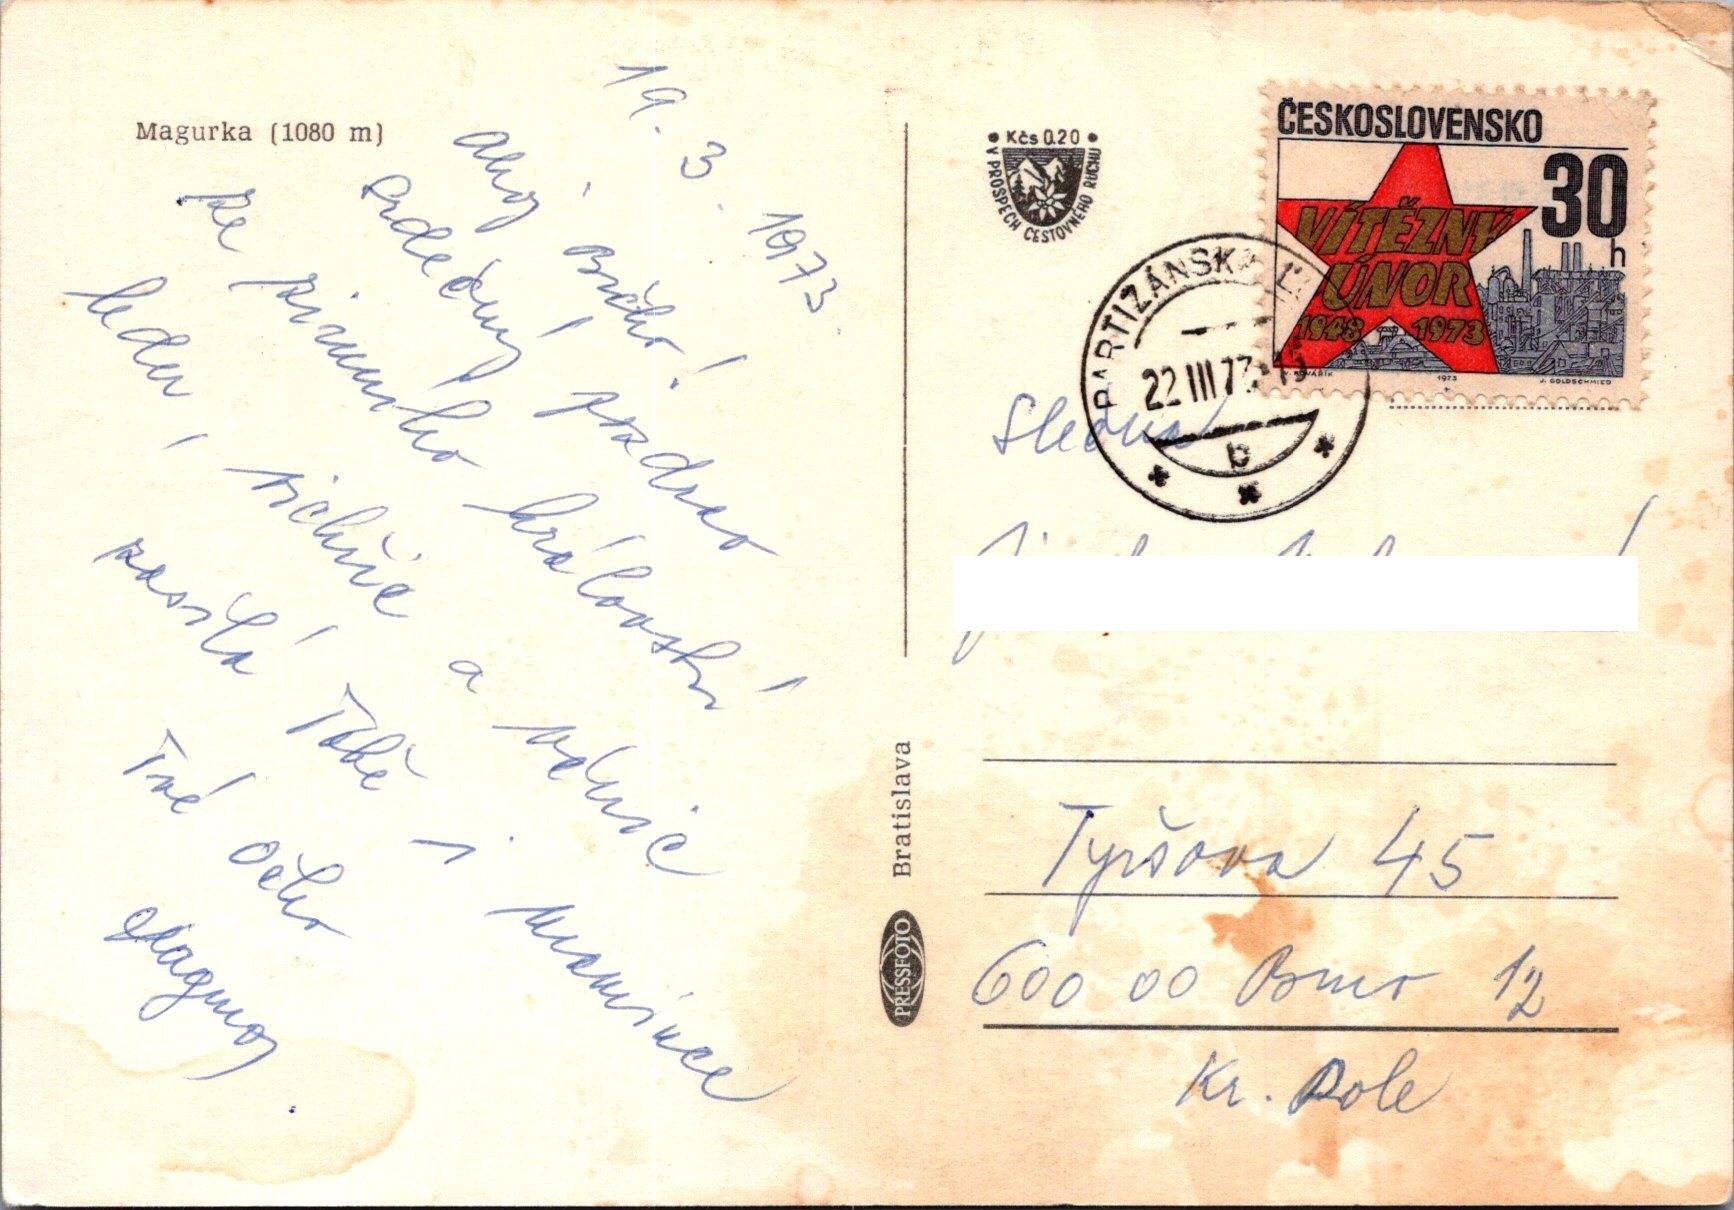 Magurka (1080 m)
19. 3. 1973.
Ahoj, Brňo!
Srdečný pozdrav
ze zimního království
ledu, vichřic a vánic
zasílá Tobě i mamince
Tvé
Kčs 0.20
V PROSPECH CESTOVNÉHO RUCHU
ČESKOSLOVENSKO
30 h
VÍTĚZNÝ
ÚNOR
1948 1973
1973
J. GOLDSCHMIED
PARTIZÁNSKA
22 III 73
b
Slečna
Bratislava
PRESSFOTO
Tyršova 45
600 00 Brno 12
Kr. Pole